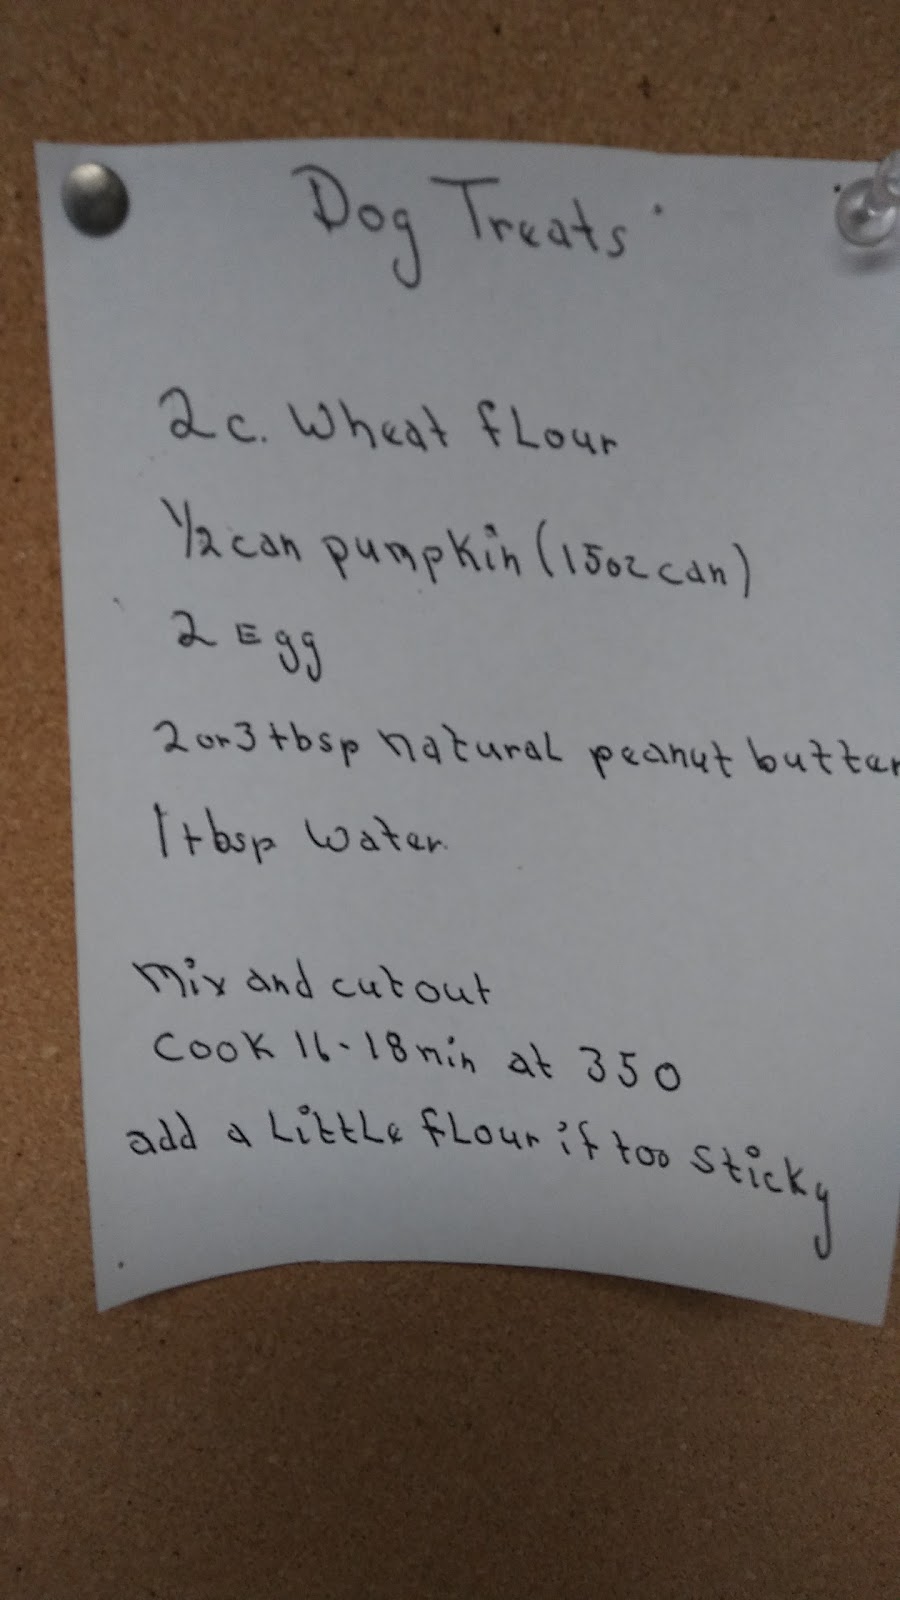 Dog Treats
2 c. Wheat flour
1/2 can pumpkin (15oz can)
2 Egg
2 or 3 tbsp natural peanut butter
1 tbsp water
mix and cut out
Cook 16-18 min at 350
add a little flour if too sticky